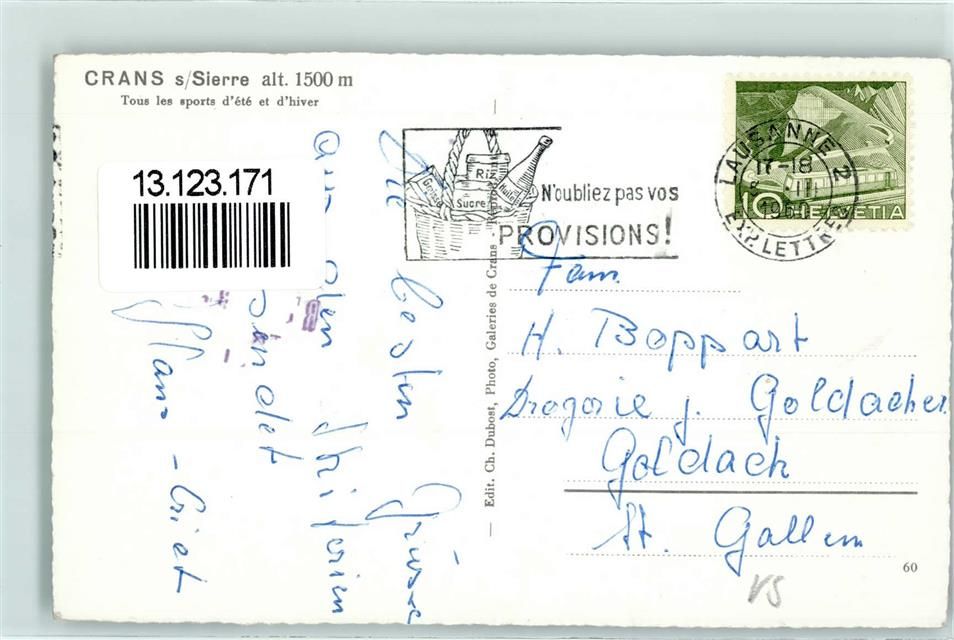 CRANS s/Sierre alt. 1500 m
Tous les sports d'été et d'hiver
13.123.171
Die besten Grüsse
aus den Skiferien
sendet
Edit. Ch. Dubost, Photo, Galeries de Crans -
Riz
Sucre
Huile
N'oubliez pas vos
PROVISIONS!
LAUSANNE 2
17-18
III
EXP. LETTRES
10 HELVETIA
Fam.
H. Boppart
Drogerie z. Goldacher
Goldach
St. Gallen
60